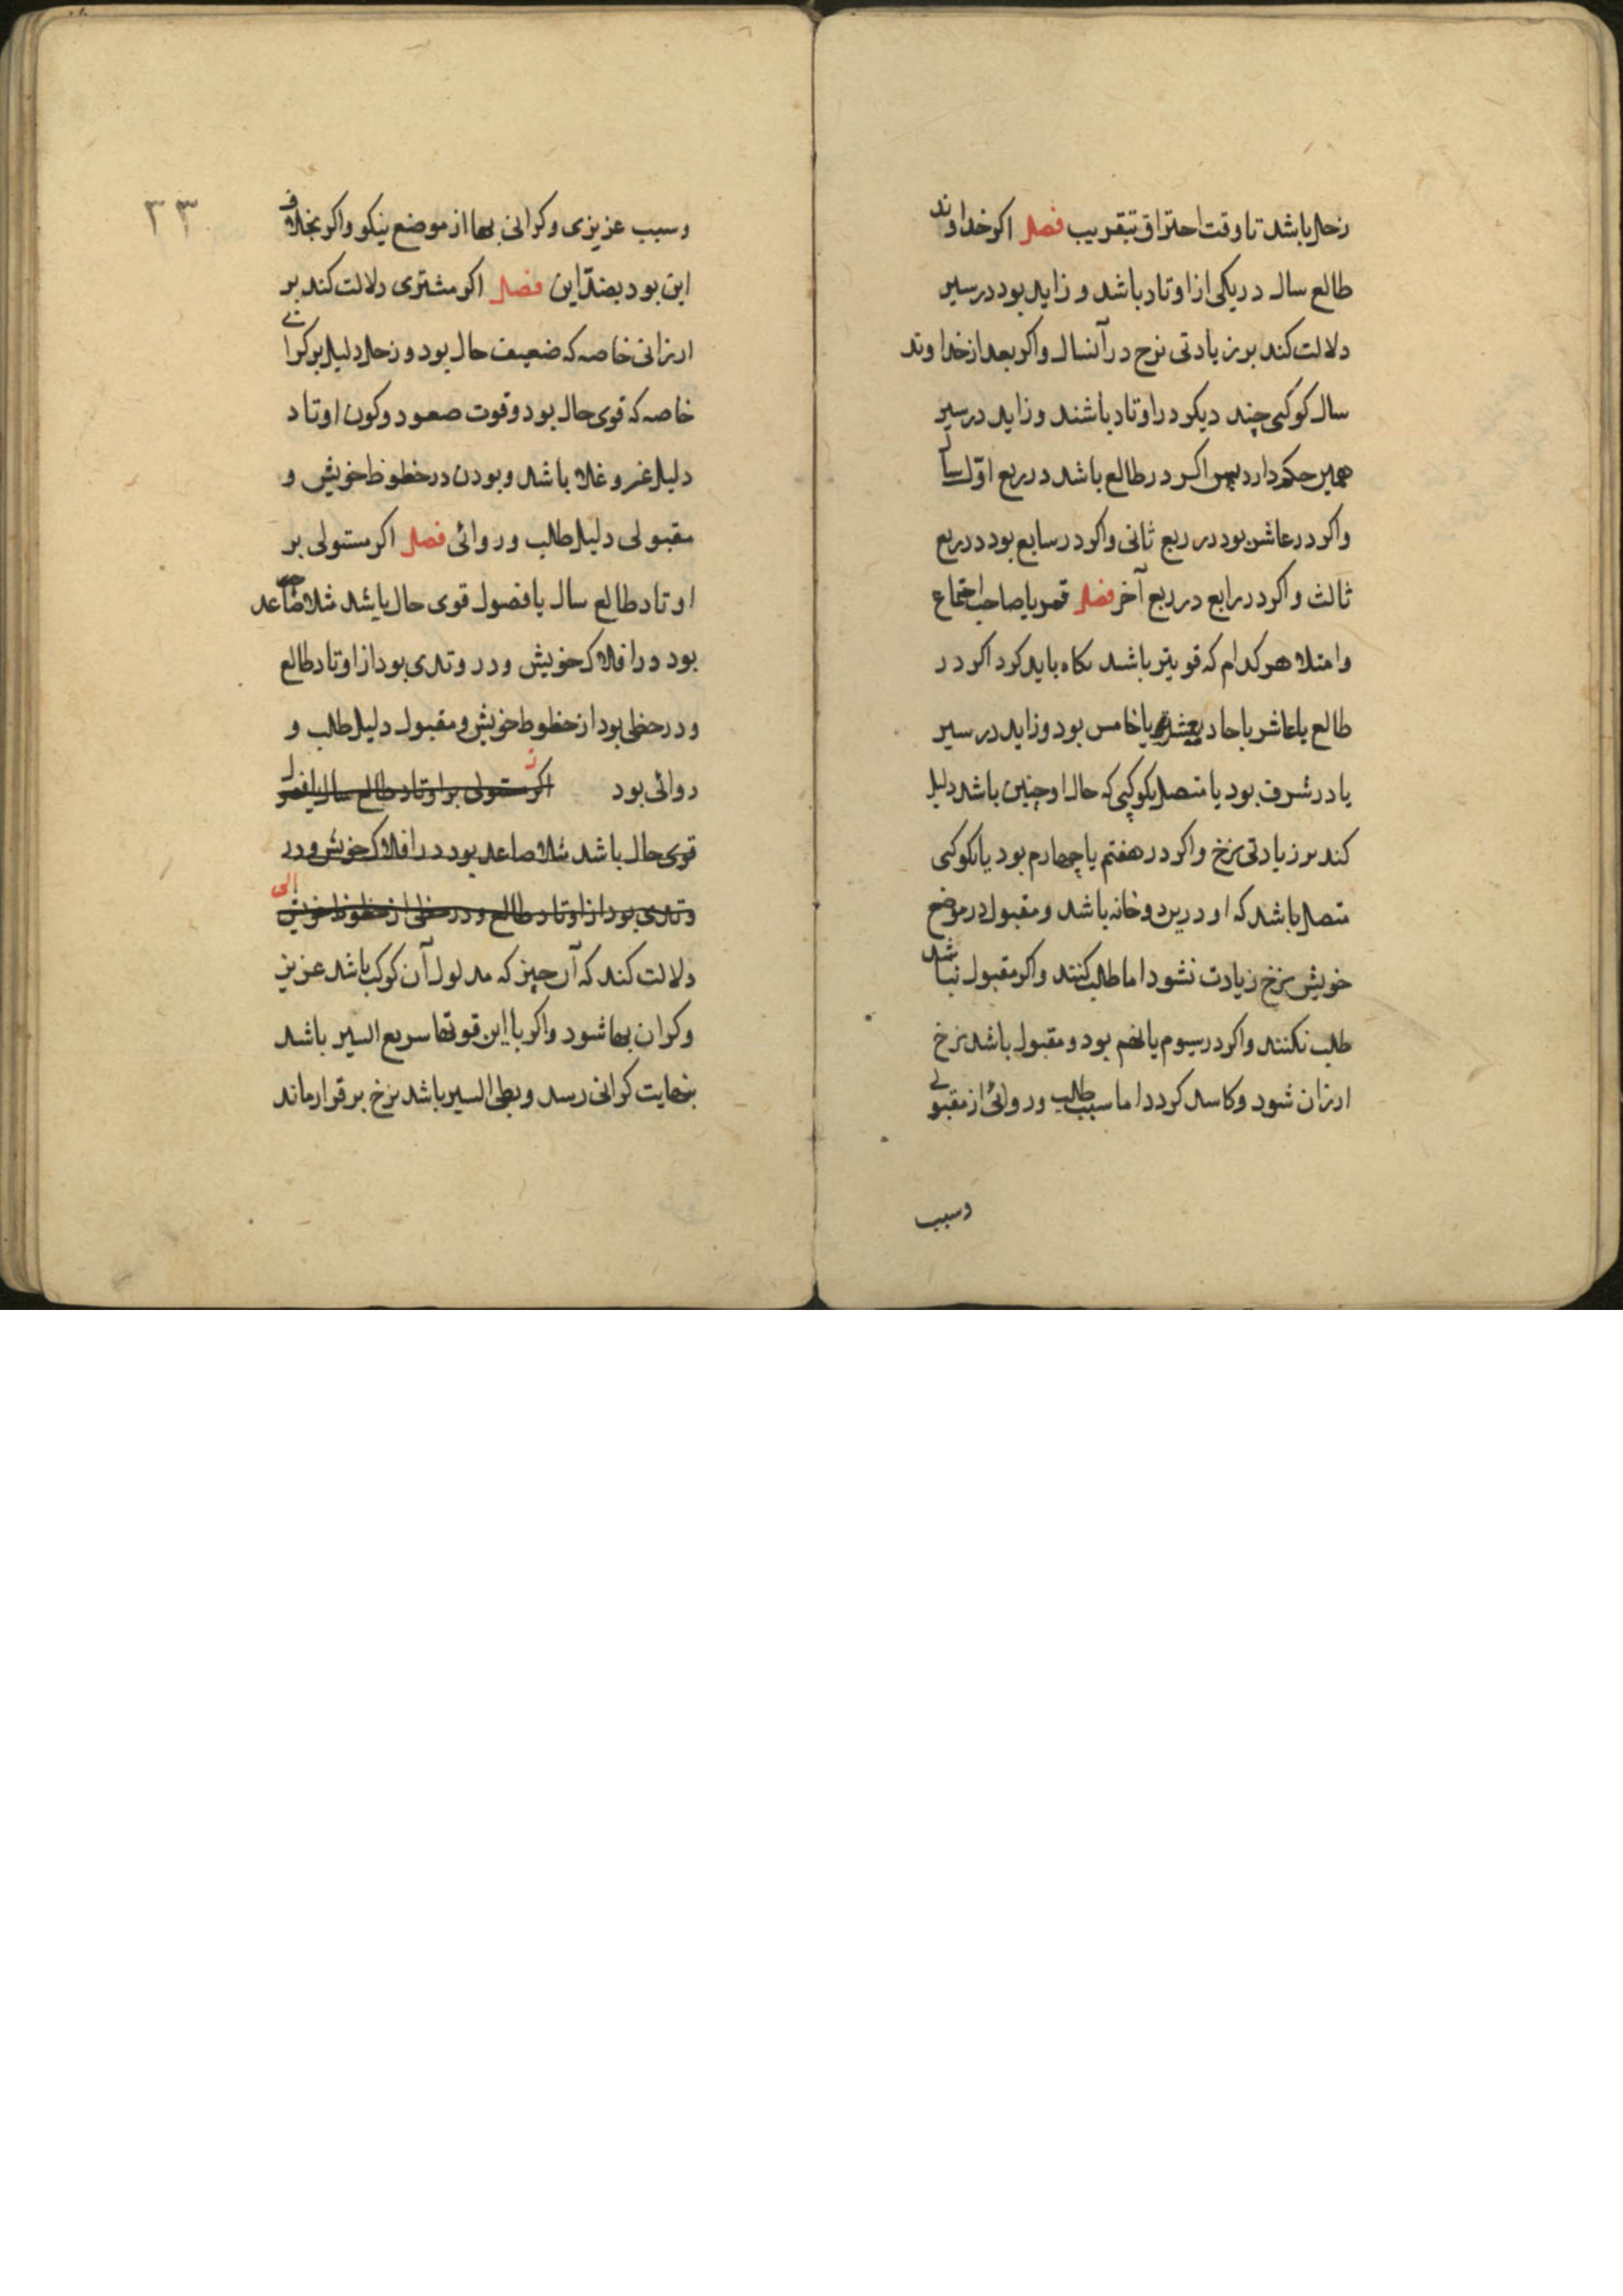 زحل باشد تا وقت احتراق بتقریب فصل اکر خداوند
طالع سال در یکی از اوتاد باشد و زاید بود در سیر
دلالت کند بر زیادتی نرح در آنسال واکر بعد از خداوند
سال کوکبی چند دیکر در اوتاد باشند و زاید در سیر
همین حکم دارد پس اکر در طالع باشد در ربع اوّل سال
واکر در عاشر بود در ربع ثانی واکر در سابع بود در ربع
ثالث و اکر در رابع در ربع آخر فصل قمر یا صاحب اجتماع
وامتلا هر کدام که قویتر باشد نکاه باید کرد اکر در
طالع یا عاشر یا حادیعشر یا خامس بود و زاید در سیر
یا در شرف بود یا متصل بکوکبی که حال او چنین باشد دلیل
کند بر زیادتی نرخ واکر در هفتم یا چهارم بود یا بکوکبی
متصل باشد که او درین دو خانه باشد و مقبول در موضع
خویش نرخ زیادت نشود اما طلب کنند واکر مقبول نباشد
طلب نکنند واکر در سیوم یا نهم بود و مقبول باشد نرخ
ارزان شود و کاسد کردد اما سبب طلب و روائی از مقبولی
وسبب
۳۳
وسبب عزیزی و کرانی بها از موضع نیکو واکر بخلاف
این بود بضدّ این فصل اکر مشتری دلالت کند بر
ارزانی خاصه که ضعیف حال بود و زحل دلیل بر کرانی
خاصه که قوی حال بود و قوت صعود و کون اوتاد
دلیل عز و غلا باشد و بودن در حظوظ خویش و
مقبولی دلیل طلب و روائی فصل اکر مستولی بر
اوتاد طالع سال یا فصول قوی حال باشد مثلا صاعد
بود در افلاک خویش و در وتدی بود از اوتاد طالع
و در حظی بود از حظوظ خویش و مقبول دلیل طلب و
روائی بود اکر مستولی بر اوتاد طالع سال یا فصول
قوی حال باشد مثلا صاعد بود در افلاک خویش و در
وتدی بود از اوتاد طالع و در حظی از حظوظ خویش الی
دلالت کند که آن چیز که مدلول آن کوکب باشد عزیز
وکران بها شود واکر با این قوتها سریع السیر باشد
بنهایت کرانی رسد و بطی السیر باشد نرخ بر قرار ماند